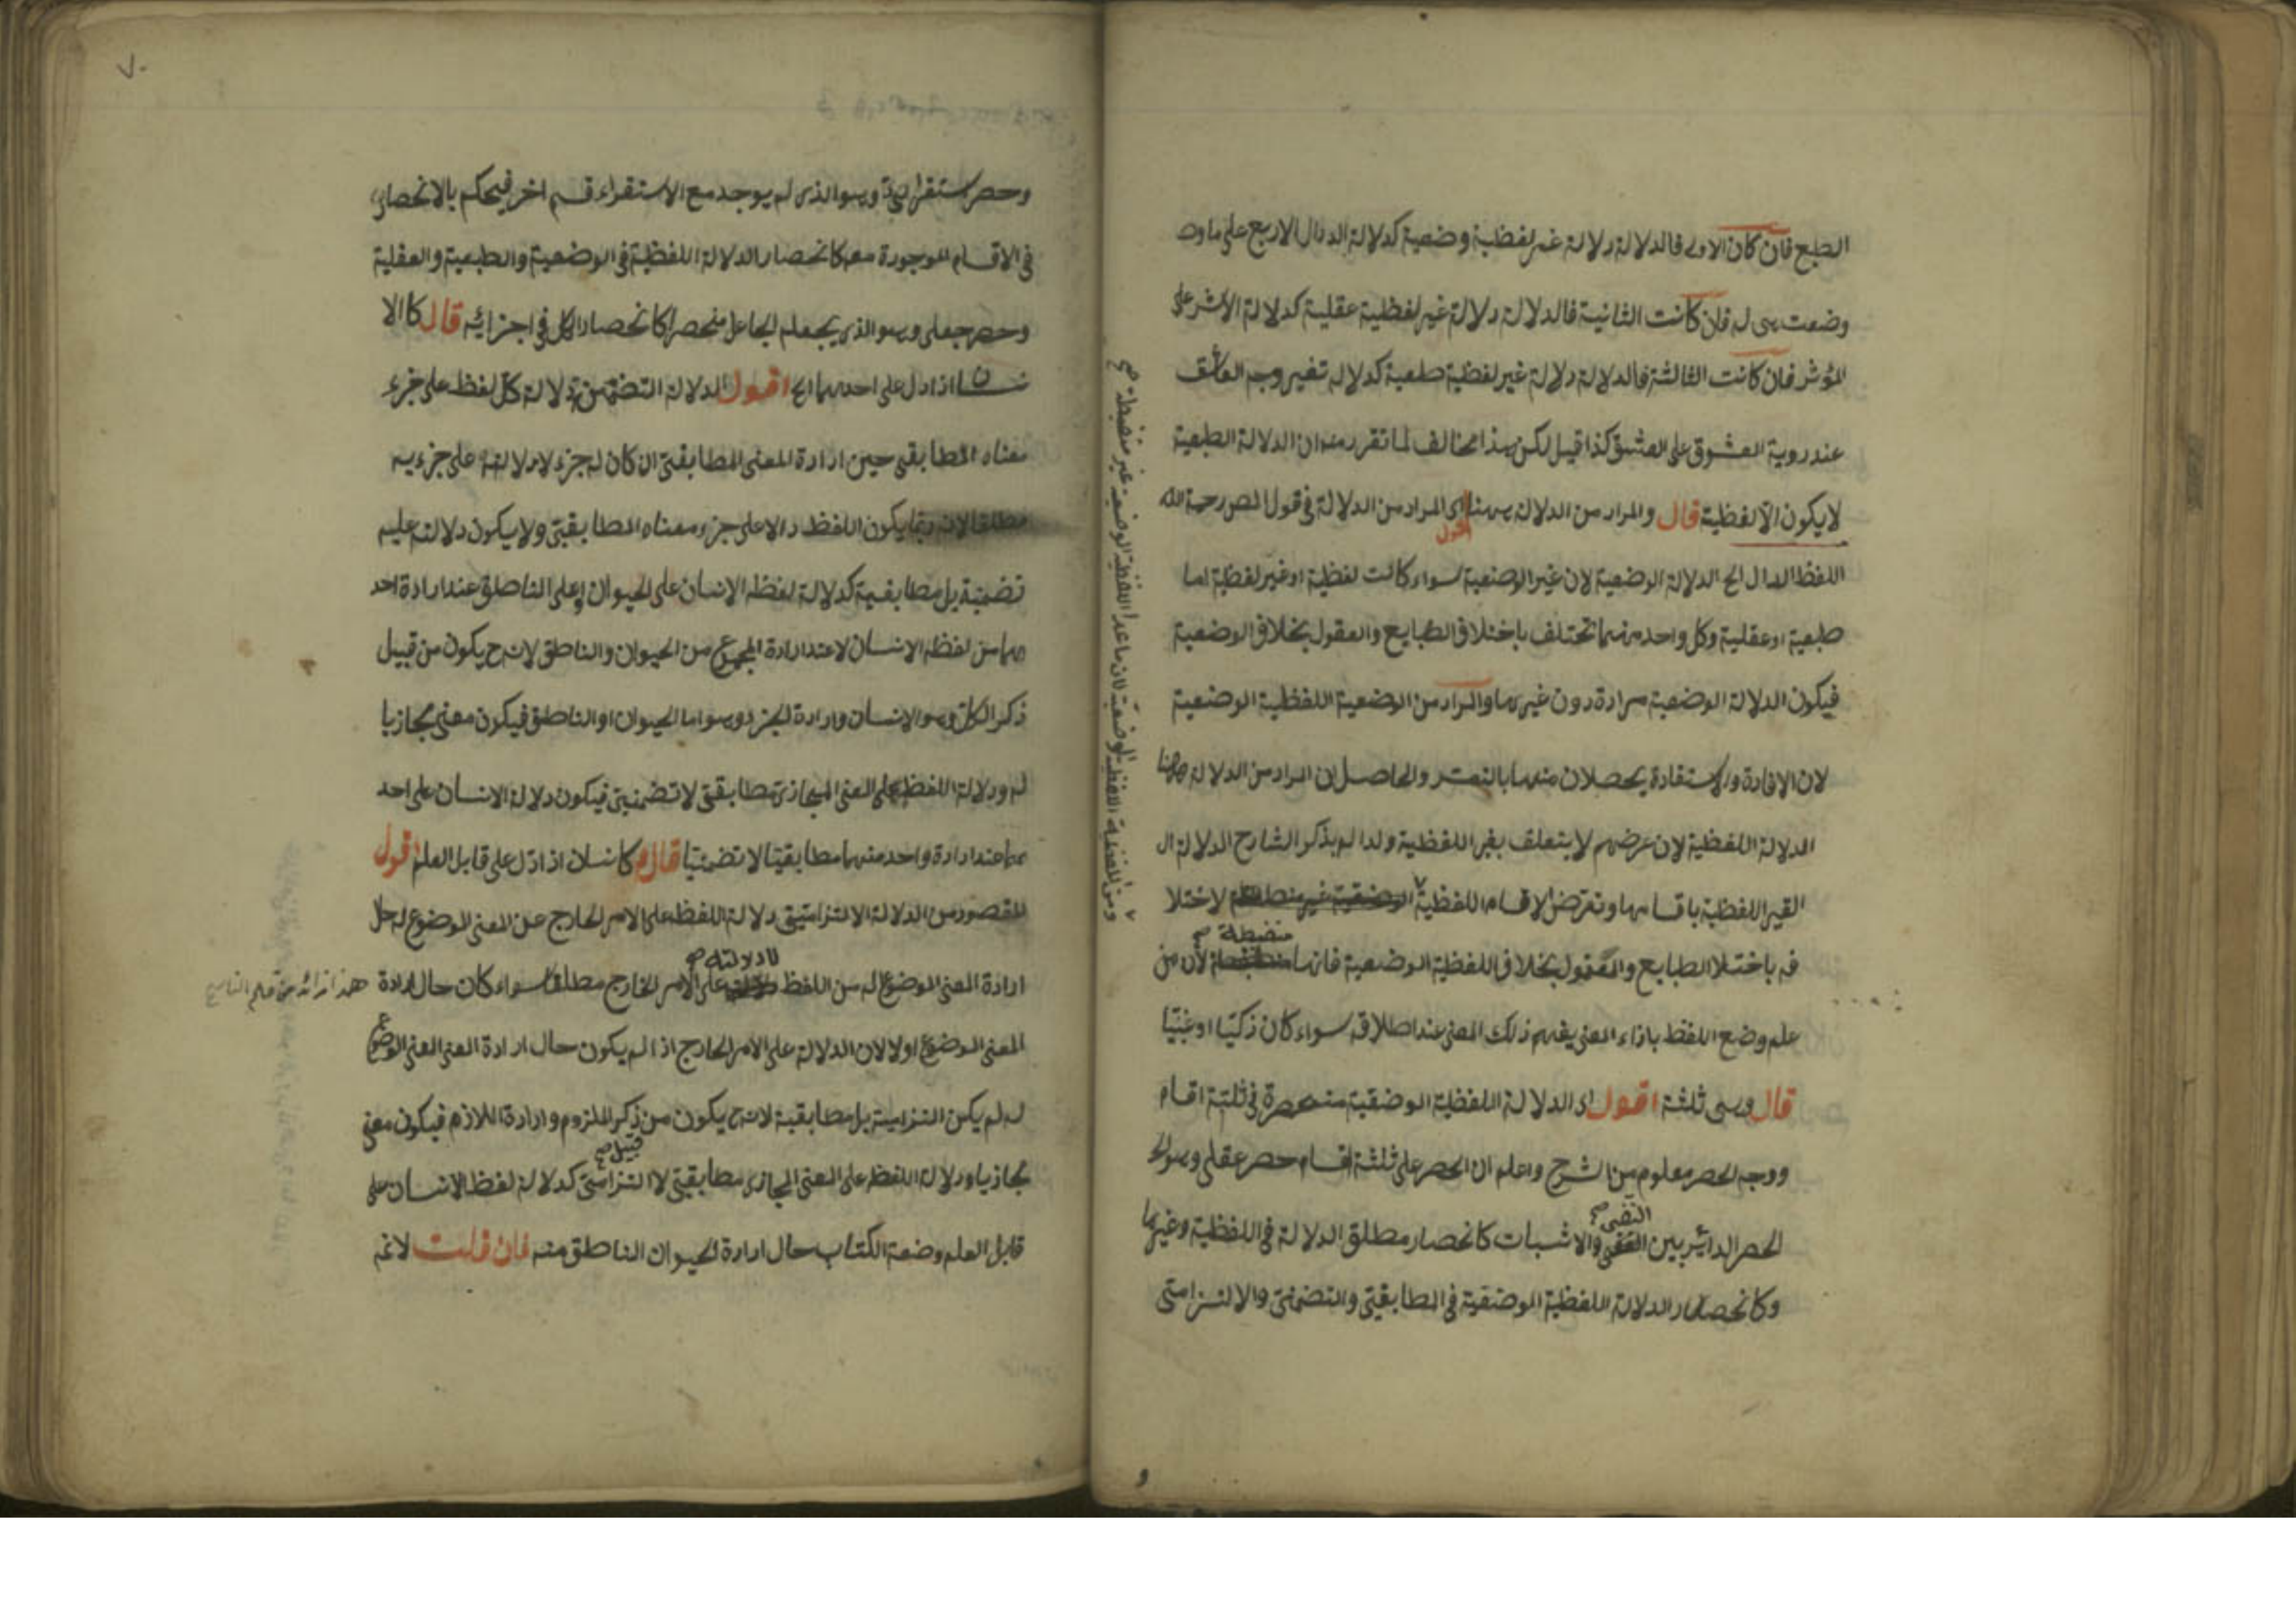 الطبع فان كان الاولى فالدلالة دلالة غير لفظية وضعية كدلالة الدوال الاربع على ما
وضعت هى له فان كانت الثانية فالدلالة دلالة غير لفظية عقلية كدلالة الاثر على
المؤثر فان كانت الثالثة فالدلالة دلالة غير لفظية طبعية كدلالة تغير وجه العاشق
عند روية المعشوق على العشق كذا قيل لكن هذا مخالف لما تقرر منه ان الدلالة الطبعية
لا يكون الا لفظية قال والمراد من الدلالة ههنا اقول اى المراد من الدلالة فى قول المص رحمة الله
اللفظ الدال الخ الدلالة الوضعية لان غير الوضعية سواء كانت لفظية او غير لفظية اما
طبعية او عقلية وكل واحد منهما تختلف باختلاف الطبايع والعقول بخلاف الوضعية
فيكون الدلالة الوضعية مرادة دون غيرها والمراد من الوضعية اللفظية الوضعية
لان الافادة والاستفادة يحصلان منهما بالتعسر والحاصل ان المراد من الدلالة ههنا
الدلالة اللفظية لان غرضهم لا يتعلق بغير اللفظية ولذا لم يذكر الشارح الدلالة ال
الغير اللفظية باقسامها وتعرض لاقسام اللفظية لاختلا
فه باختلا الطبايع والعقول بخلاف اللفظية الوضعية فانها منضبطة صح لان من
علم وضع اللفظ بازاء المعنى يفهم ذلك المعنى عند اطلاقه سواء كان ذكيا او غبيا
قال وهى ثلثة اقول اى الدلالة اللفظية الوضعية منحصرة فى ثلثة اقسام
ووجه الحصر معلوم من الشرح واعلم ان الحصر على ثلثة اقسام حصر عقلى وهو
الحصر الدائر بين النفى صح والاثبات كانحصار مطلق الدلالة فى اللفظية وغيرها
وكانحصار الدلالة اللفظية الوضعية فى المطابقى والتضمنى والالتزامى
ومن اللفظية اللفظية الوضعية لان ما عدا اللفظية الوضعية غير منضبطة صح
٧٠
وحصر استقرائى وهو الذى لم يوجد مع الاستقراء قسم اخر فيحكم بالانحصار
فى الاقسام الموجودة معه كانحصار الدلالة اللفظية فى الوضعية والطبعية والعقلية
وحصر جعلى وهو الذى يجعله الجاعل منحصرا كانحصار الكل فى اجزائه قال كالا
نسان اذا دل على احدهما الخ اقول الدلالة التضمن دلالة كل لفظ على جزء
معناه المطابقى حين ارادة المعنى المطابقى ان كان له جزء لا دلالته على جزءيه
مطلقا لانه ربما يكون اللفظ دالا على جزء معناه المطابقى ولا يكون دلالته عليه
تضمنية بل مطابقية كدلالة لفظ الانسان على الحيوان او على الناطق عند ارادة احد
هما من لفظ الانسان لا عند ارادة المجموع من الحيوان والناطق لانه ح يكون من قبيل
ذكر الكل وهو الانسان وارادة الجزء وهو اما الحيوان او الناطق فيكون معنى مجازيا
له ودلالة اللفظ على المعنى المجازى مطابقى لا تضمنى فيكون دلالة الانسان على احد
هما عند ارادة واحد منهما مطابقيا لا تضمنيا قال كانسان اذا دل على قابل العلم اقول
المقصود من الدلالة الالتزامى دلالة اللفظ على الامر الخارج عن المعنى الموضوع له حال
ارادة المعنى الموضوع له من اللفظ لا دلالته صح على الامر الخارج مطلقا سواء كان حال ارادة
هذا زائد من قلم الناسخ
المعنى الموضوع اولا لان الدلالة على الامر الخارج اذا لم يكون حال ارادة المعنى المعنى الموضوع
له لم يكن التزامية بل مطابقية لانه ح يكون من قبيل صح ذكر الملزوم وارادة اللازم فيكون معنى
مجازيا ودلالة اللفظ على المعنى المجازى مطابقى لا التزامى كدلالة لفظ الانسان على
قابل العلم وضعة الكتاب حال ارادة الحيوان الناطق منه فان قلت لانه